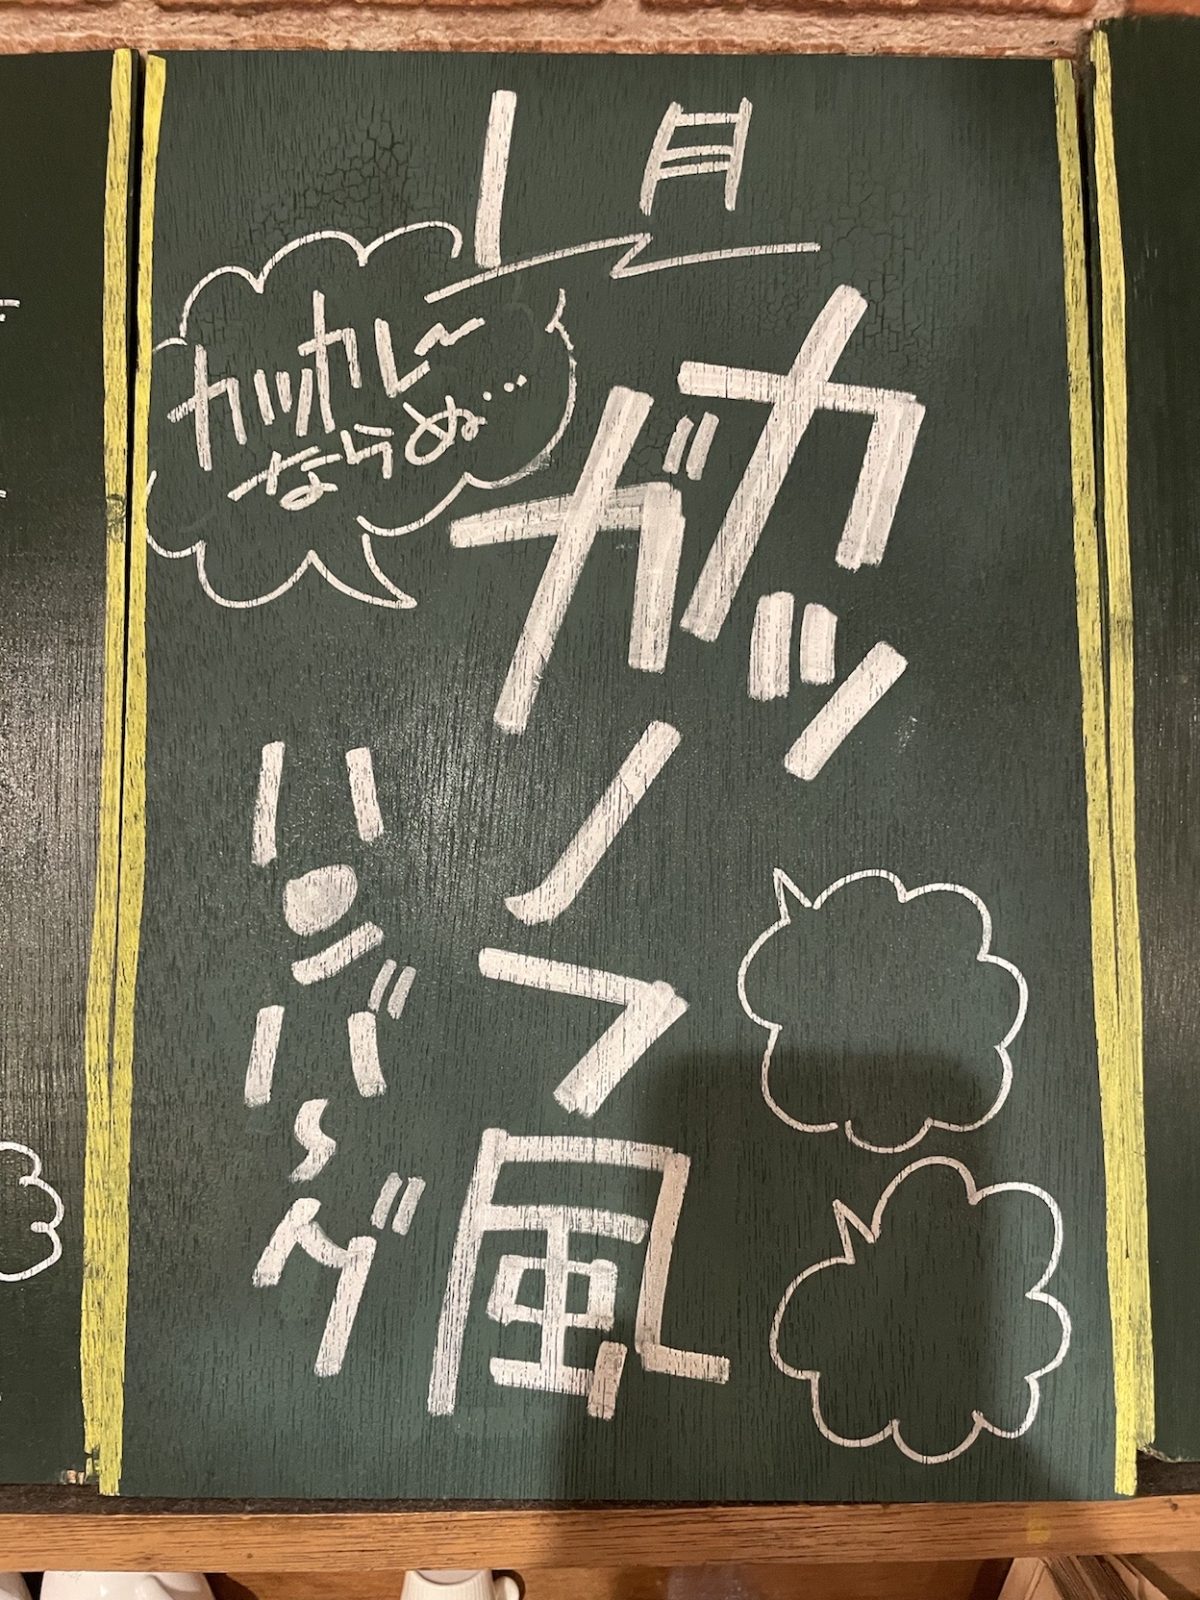 1月
カツカレー
ならぬ…
カツ
ガノフ風
ハンバーグ